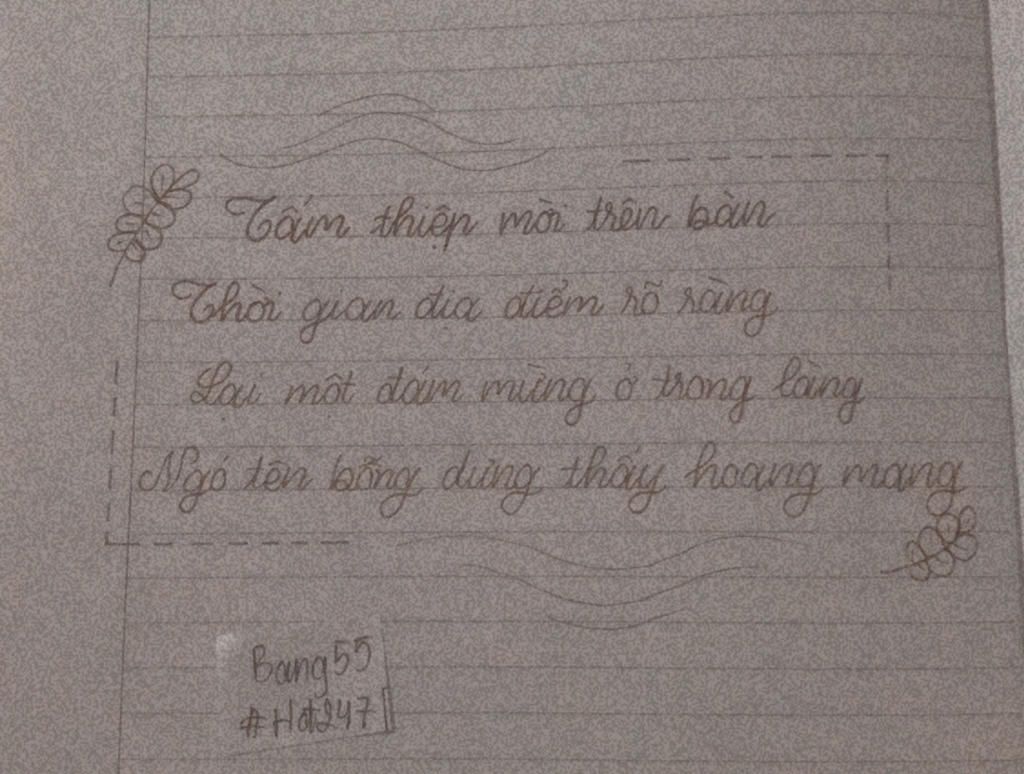 Tấm thiệp mời trên bàn
Thời gian địa điểm rõ ràng
Lại một đám mừng ở trong làng
Ngó tên bỗng dưng thấy hoang mang
Bang55
#Hot247